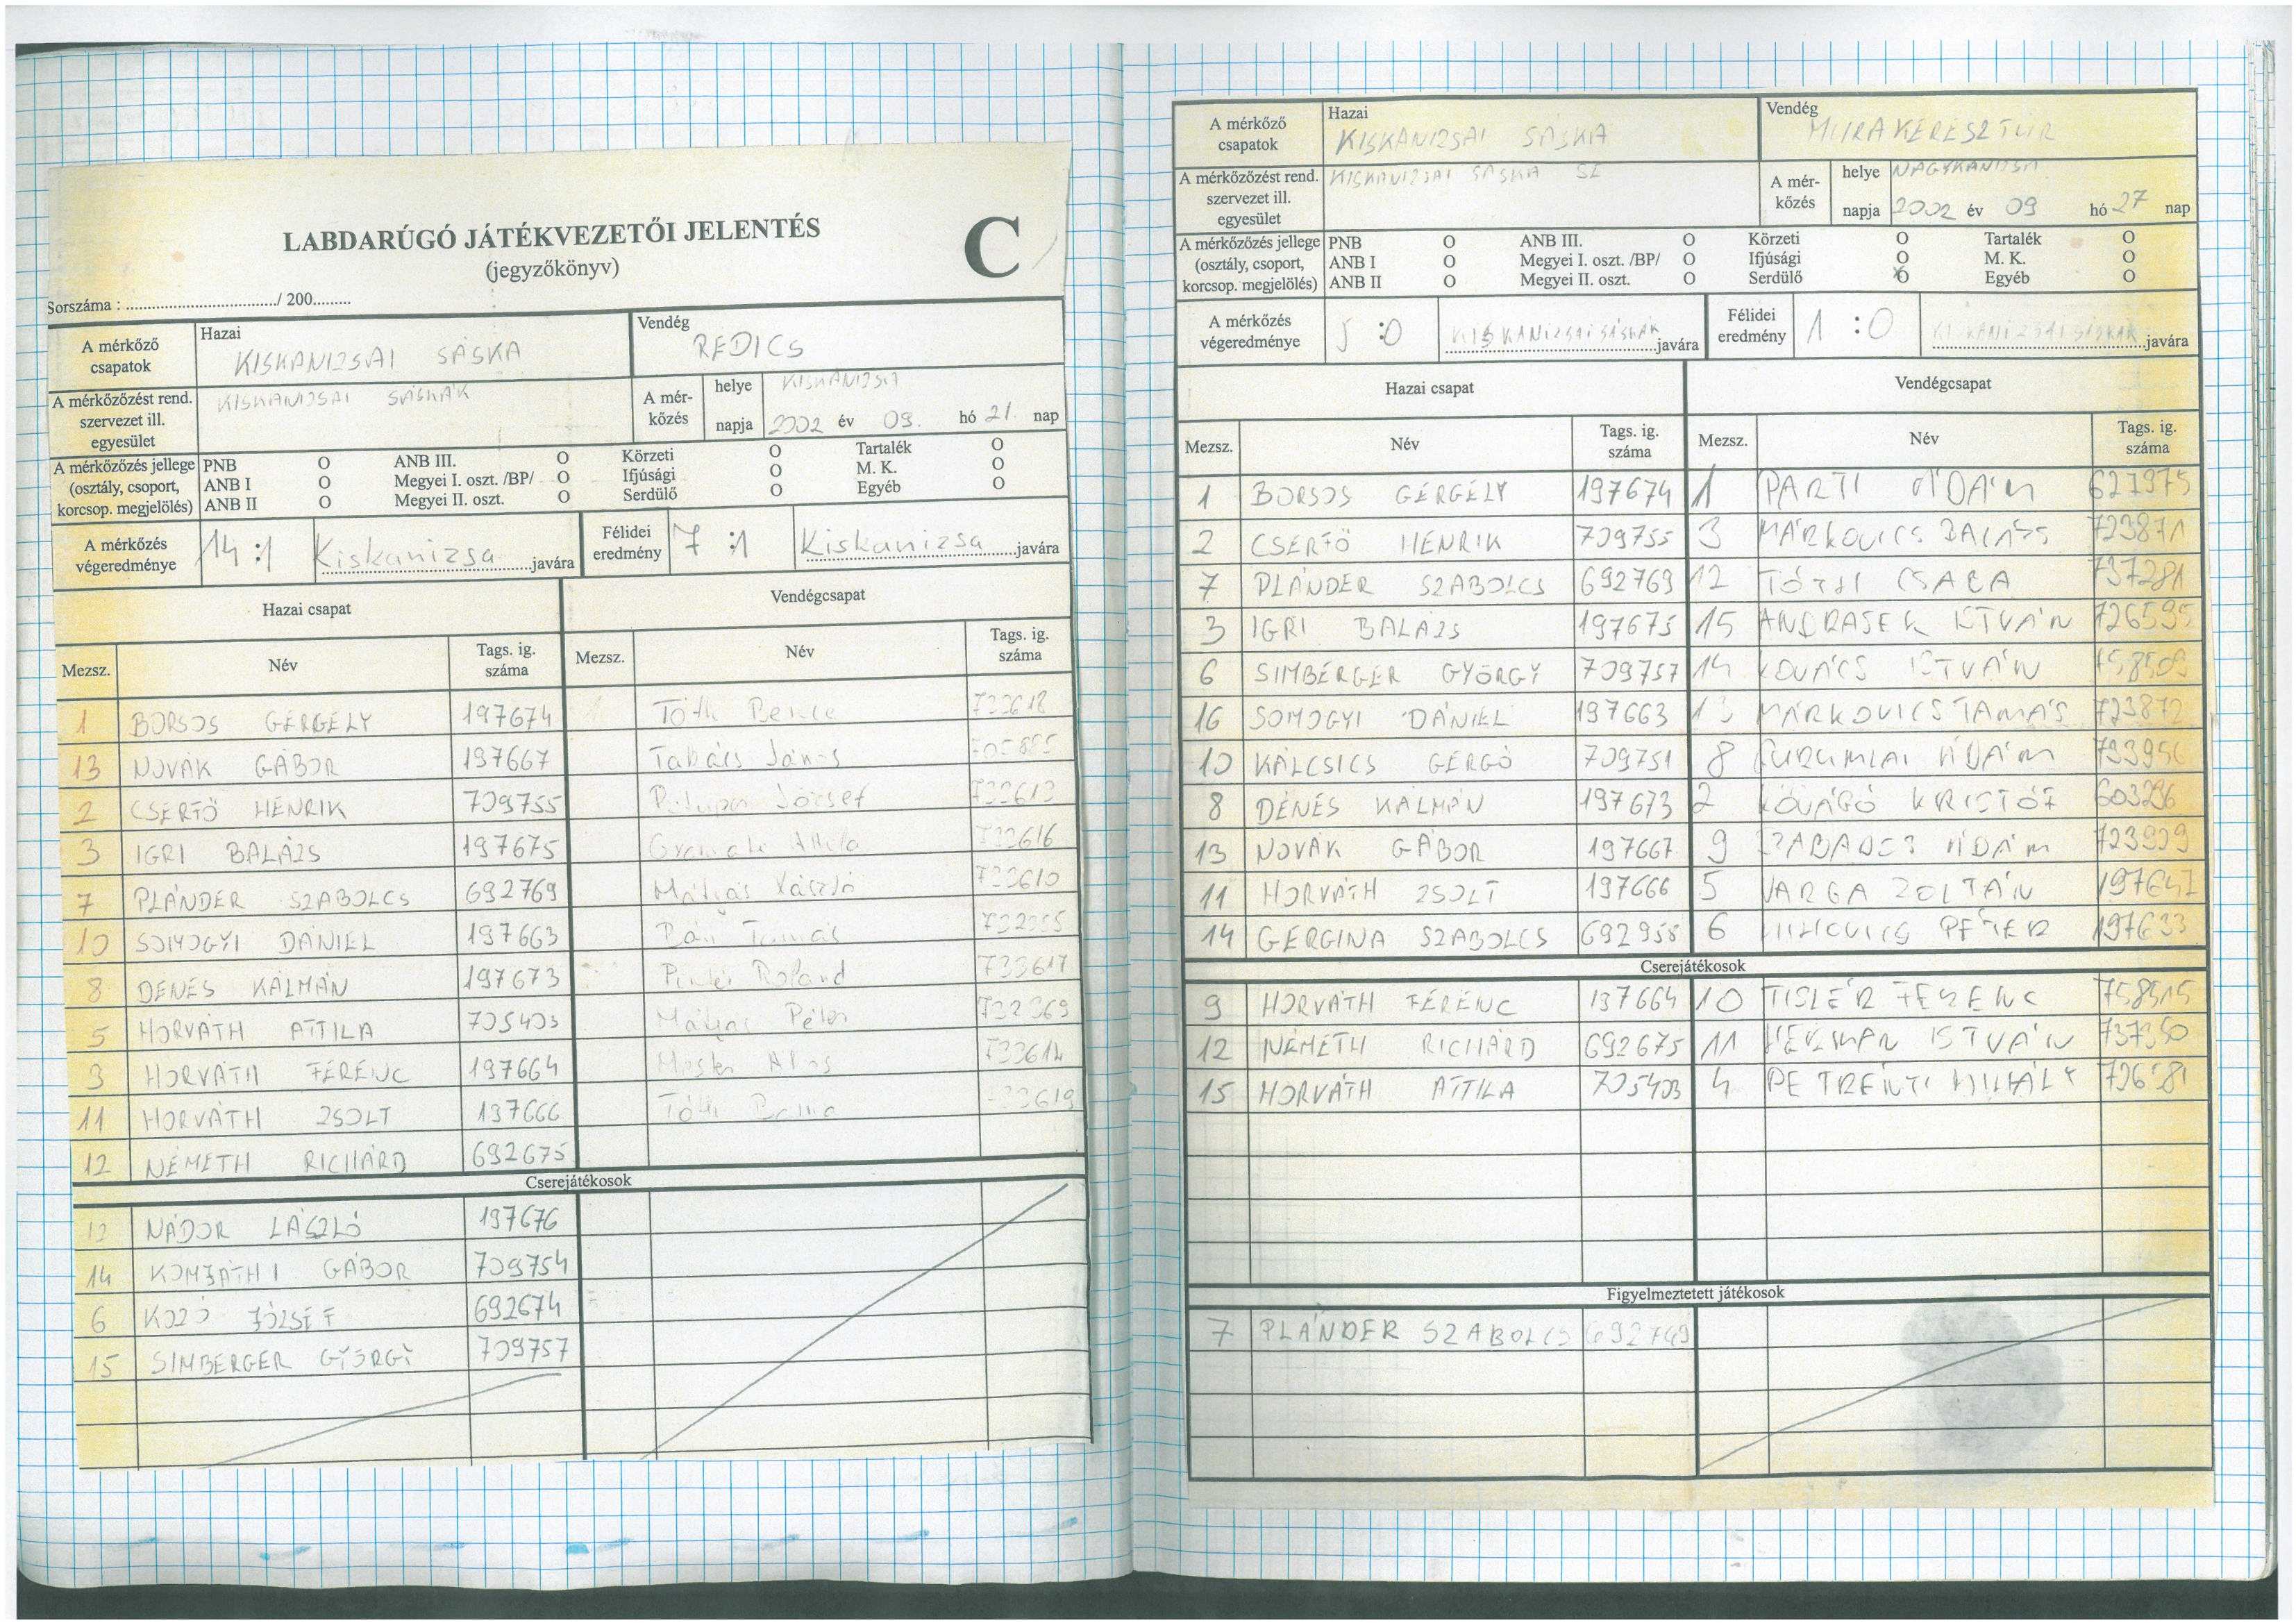 LABDARÚGÓ JÁTÉKVEZETŐI JELENTÉS
C
(jegyzőkönyv)
Sorszáma : ................................/ 200.........
A mérkőző csapatok
Hazai
KISKANIZSAI SÁSKA
Vendég
REDICS
A mérkőzőzést rend. szervezet ill. egyesület
KISKANIZSAI SÁSKÁK
A mér-kőzés
helye KISKANIZSA
napja 2002 év 09. hó 21. nap
A mérkőzőzés jellege (osztály, csoport, korcsop. megjelölés)
PNB O ANB III. O Körzeti O Tartalék O
ANB I O Megyei I. oszt. /BP/ O Ifjúsági O M. K. O
ANB II O Megyei II. oszt. O Serdülő O Egyéb O
A mérkőzés végeredménye 14 :1 Kiskanizsa javára Félidei eredmény 7 :1 Kiskanizsa javára
Hazai csapat Vendégcsapat
Mezsz. Név Tags. ig. száma Mezsz. Név Tags. ig. száma
1 BORSOS GERGELY 197674 Tóth Bence
13 NOVÁK GÁBOR 197667
2 CSERTŐ HENRIK 709755 József
3 IGRI BALÁZS 197675 Attila
7 PLÁNDER SZABOLCS 692769 László
10 SOMOGYI DÁNIEL 197663 Tamás
8 DÉNES KÁLMÁN 197673 Roland 733617
5 HORVÁTH ATTILA 705403 Péter
9 HORVÁTH FERENC 197664 733614
11 HORVÁTH ZSOLT 197666 Tóth
12 NÉMETH RICHÁRD 692675
Cserejátékosok
12 NÁDOR LÁSZLÓ 197676
14 GÁBOR 709754
6 JÓZSEF 692674
15 SIMBERGER GYÖRGY 709757
A mérkőző csapatok
Hazai
KISKANIZSAI SÁSKA
Vendég
MURAKERESZTUR
A mérkőzőzést rend. szervezet ill. egyesület
KISKANIZSAI SÁSKA SE
A mér-kőzés
helye NAGYKANIZSA
napja 2002 év 09 hó 27 nap
A mérkőzőzés jellege (osztály, csoport, korcsop. megjelölés)
PNB O ANB III. O Körzeti O Tartalék O
ANB I O Megyei I. oszt. /BP/ O Ifjúsági O M. K. O
ANB II O Megyei II. oszt. O Serdülő O Egyéb O
A mérkőzés végeredménye 5 :0 KISKANIZSAI SÁSKÁK javára Félidei eredmény 1 :0 KISKANIZSAI SÁSKÁK javára
Hazai csapat Vendégcsapat
Mezsz. Név Tags. ig. száma Mezsz. Név Tags. ig. száma
1 BORSOS GERGELY 197674 1 PARTI ÁDÁM 627975
2 CSERTŐ HENRIK 709755 3 MÁRKOVICS BALÁZS 723871
7 PLÁNDER SZABOLCS 692769 12 TÓTH CSABA 737281
3 IGRI BALÁZS 197675 15 ANDRASEK ISTVÁN 726595
6 SIMBERGER GYÖRGY 709757 14 KOVÁCS ISTVÁN
16 SOMOGYI DÁNIEL 197663 13 MÁRKOVICS TAMÁS 723872
10 KÁLCSICS GERGŐ 709751 8 ÁDÁM
8 DÉNES KÁLMÁN 197673 2 KŐVÁGÓ KRISTÓF
13 NOVÁK GÁBOR 197667 9 ÁDÁM
11 HORVÁTH ZSOLT 197666 5 VARGA ZOLTÁN
14 GERGINA SZABOLCS 692958 6 PÉTER 197633
Cserejátékosok
9 HORVÁTH FERENC 197664 10 TISLÉR FERENC 758515
12 NÉMETH RICHÁRD 692675 11 ISTVÁN
15 HORVÁTH ATTILA 705403 4 MIHÁLY
Figyelmeztetett játékosok
7 PLÁNDER SZABOLCS 692769